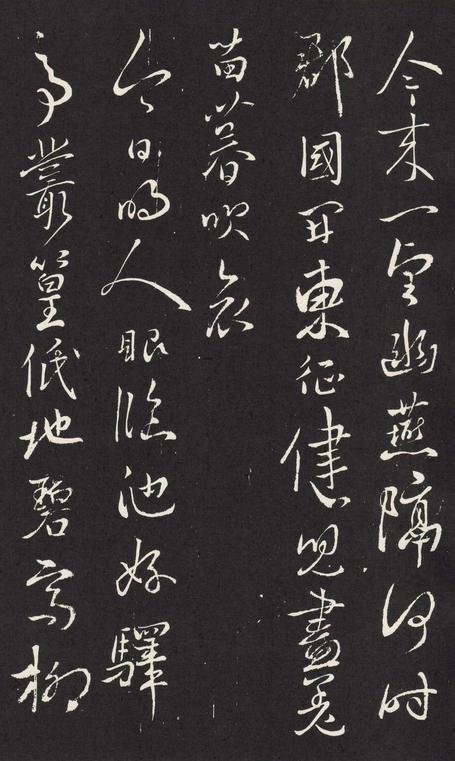 今來一望幽燕隔何時
郡國開東征健兒盡羌
笛暮吹哀
今日明人眼臨池好驛
亭叢篁低地碧高柳